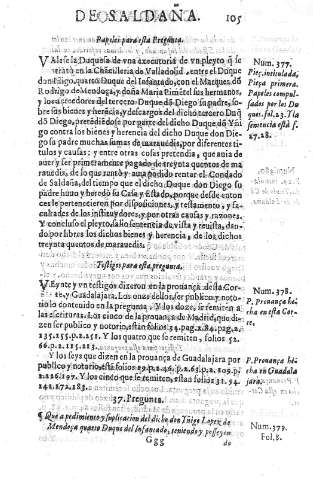 DE SALDAÑA. 105
Papeles para esta Pregunta.
VAlese la Duquesa de vna executoria de vn pleyto q̃ se
tratò en la Chãcilleria de Valladolid, entre el Duque
don Iñigo, quarto Duque del Infantado, con el Marques dõ
Rodrigo de Mendoça, y doña Maria Pimẽtel sus hermanos,
y los acreedores del tercero Duque dõ Diego su padre, sobre
sus bienes y herẽcia, y descargos del dicho tercero Duq̃
dõ Diego, pretẽdiẽdose por parte del dicho Duque dõ Yñigo
contra los bienes y herencia del dicho Duque don Diego
su padre muchas sumas de marauedis, por diferentes titulos
y causas: y entre otras cosas pretendia, que auia de
auer y ser primeramente pagado de treynta quentos de marauedis,
de lo que
de Saldaña, del tiempo que el dicho Duque don Diego su
padre huuo y heredò su Casa y Estado, porque desde entonces
le pertenecieron por disposiciones, y testamento, y facultades
de los instituydores, y por otras causas y razones.
Y concluso el pleyto, salio sentencia de vista y reuista, dando
por libres los dichos bienes y herencia, de los dichos
treynta quentos de marauedis.
Testigos para esta pregunta.
VEynte y vn testigos dizeron en la prouança desta Corte,
y Guadalajara. Los onze dellos, ser publico y notorio
lo contenido en la pregunta, y los doze, se remiten a
las escrituras. Los cinco de la prouança de Madrid, que dizen
ser publico y notorio, està folios 34. pag. 2. 84. pag. 2.
135. 155. p. 2. 151. Y los quatro que se remiten, folios 52.
66. p. 2. 115. 123.
Y los seys que dizen en la prouança de Guadalajara por
publico y notorio, està folios
Y los cinco que se remiten, està a folios 31. 94.
141. 172. 183.
37. Pregunta.
¶ Que a pedimiento y suplicacion del dicho don Yñigo Lopez de
Mendoça quarto Duque del Infantado, teniendo y posseyen
Ggg do
Num. 377.
Pieç. intitulada,
Pieça primera.
Papeles compulsados
por los Duques.
fol. 23. Y la
sentencia està f.
27. 28.
Num. 378.
P. Prouança hecha
en esta Corte.
P. Prouança hecha
en Guadalajara.
Num. 379.
Fol. 8.